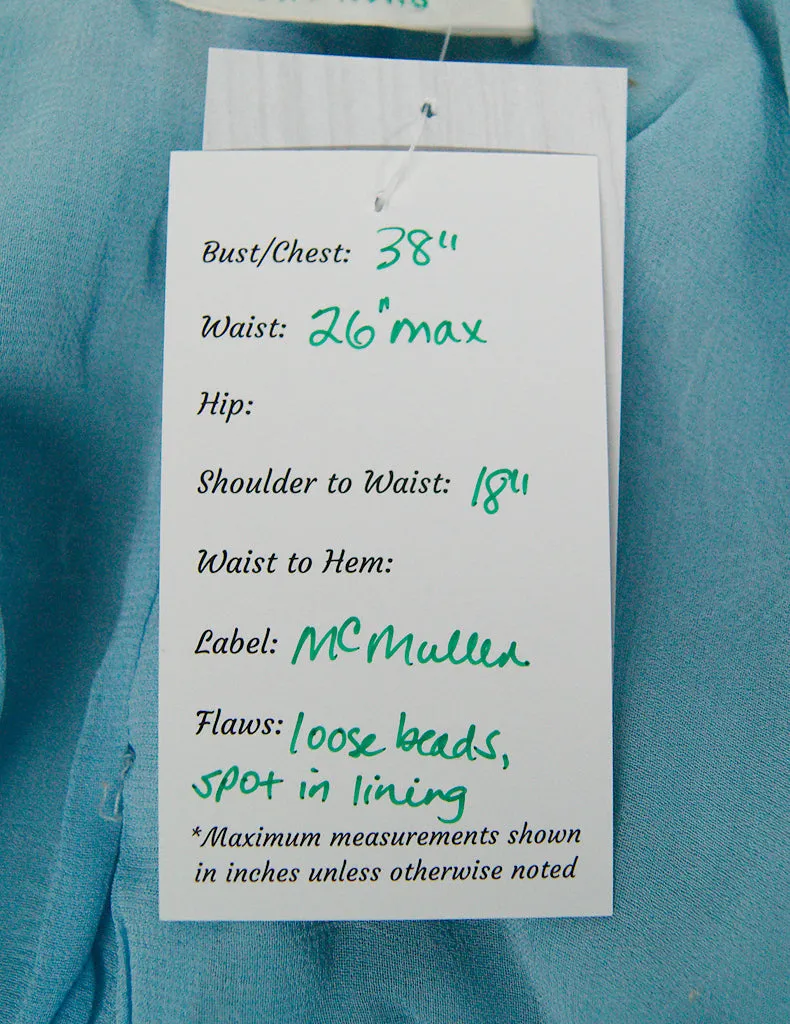 Bust/Chest: 38"
Waist: 26" max
Hip:
Shoulder to Waist: 18"
Waist to Hem:
Label: McMullen
Flaws: loose beads,
spot in lining
*Maximum measurements shown
in inches unless otherwise noted